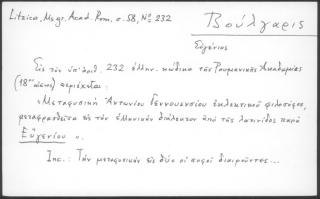 Litzica, Ms gr. Acad. Rom, σ. 58, Nº 232
Βούλγαρις
Εὐγένιος
Εἰς τὸν ὑπ' ἀριθ. 232 ἑλλην. κώδικα τῆς Ρουμανικῆς Ἀκαδημίας
(18ου αἰῶνος) περιέχεται:
«Μεταφυσικὴ Ἀντωνίου Γεννουηνσίου ἐκλεκτικοῦ φιλοσόφου,
μεταφρασθεῖσα εἰς τὴν ἑλληνικὴν διάλεκτον ἀπὸ τῆς λατινίδος παρὰ
Εὐγενίου».
Inc.: Τὴν μεταφυσικὴν εἰς δύο οἱ σοφοὶ διαιροῦντες...